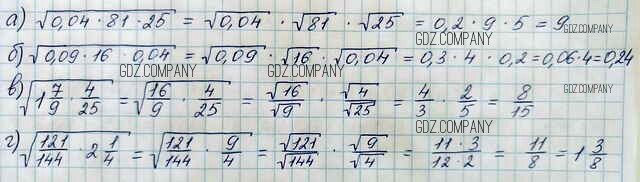 а) √(0,04 · 81 · 25) = √0,04 · √81 · √25 = 0,2 · 9 · 5 = 9
GDZ.COMPANY
GDZ.COMPANY
б) √(0,09 · 16 · 0,04) = √0,09 · √16 · √0,04 = 0,3 · 4 · 0,2 = 0,06 · 4 = 0,24
GDZ.COMPANY GDZ.COMPANY GDZ.COMPANY
в) √(1 7/9 · 4/25) = √(16/9 · 4/25) = √16/√9 · √4/√25 = 4/3 · 2/5 = 8/15
GDZ.COMPANY
GDZ.COMPANY
г) √(121/144 · 2 1/4) = √(121/144 · 9/4) = √121/√144 · √9/√4 = 11 · 3/12 · 2 = 11/8 = 1 3/8